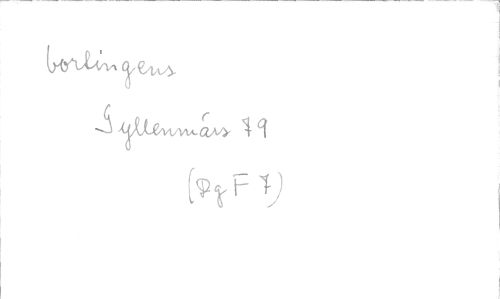 bortingens
Gyllenmärs 79
(Dg F 7)